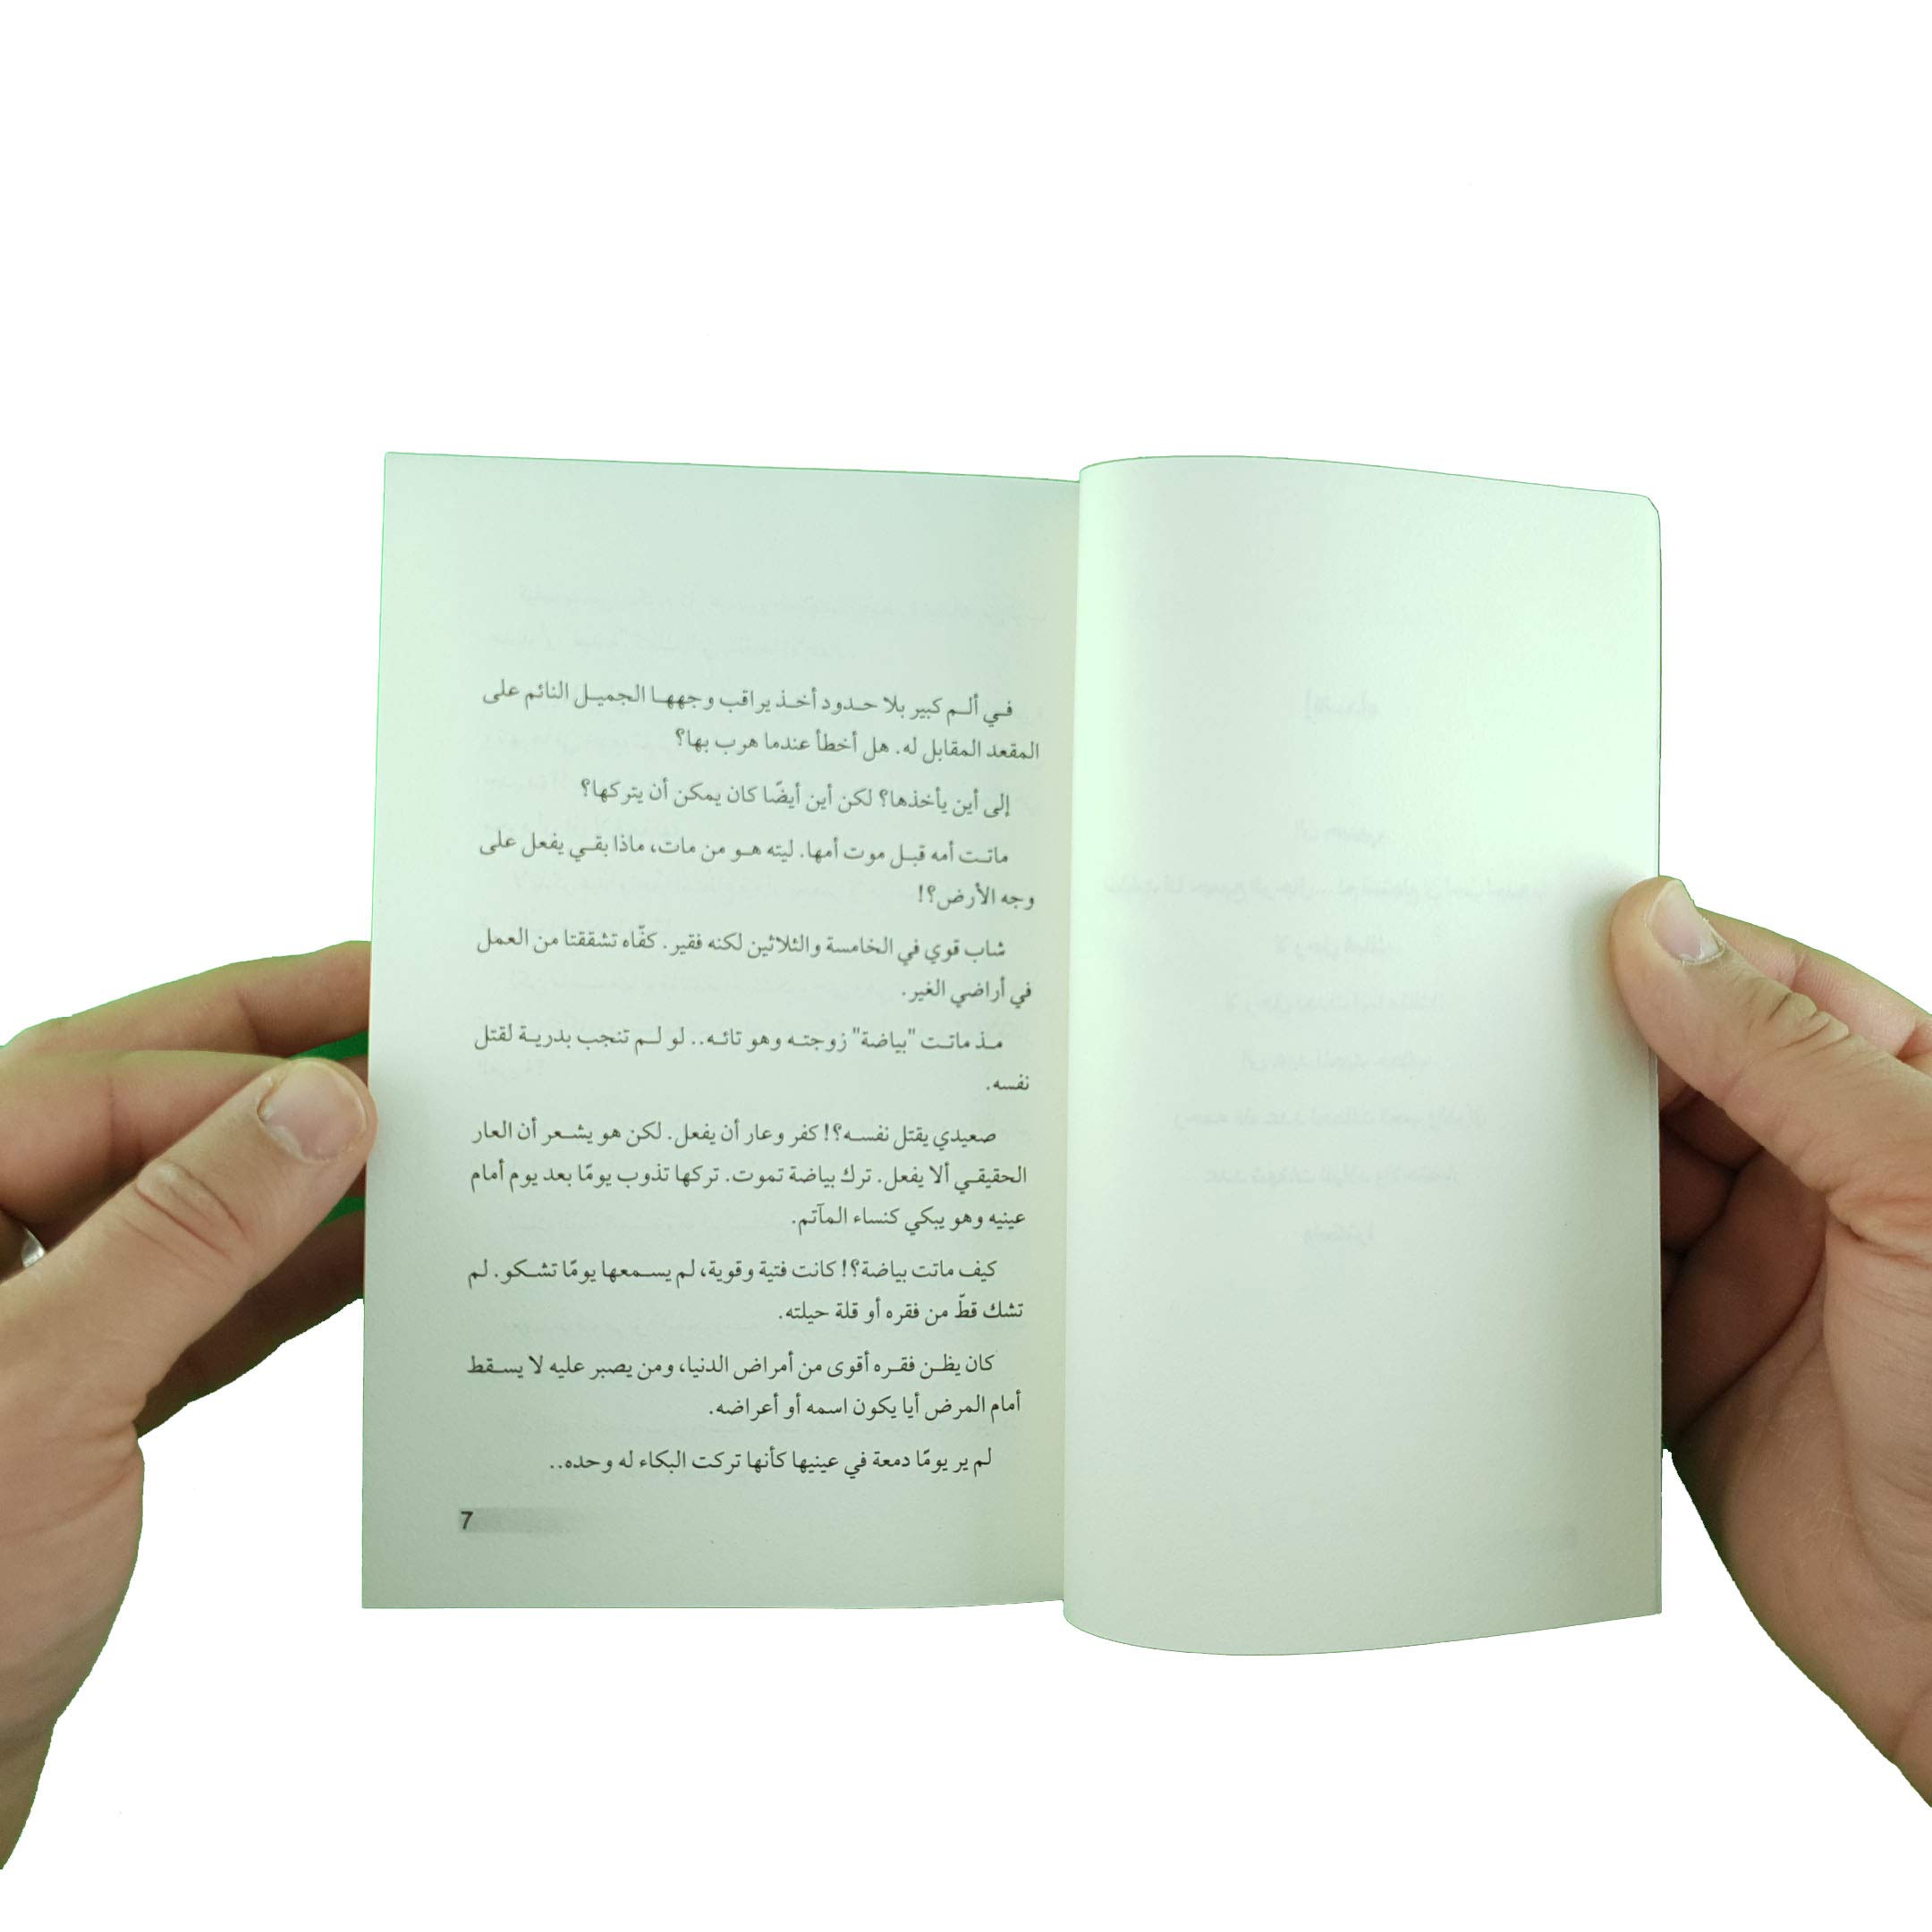 في ألم كبير بلا حدود أخذ يراقب وجهها الجميل النائم على
المقعد المقابل له. هل أخطأ عندما هرب بها؟
إلى أين يأخذها؟ لكن أين أيضًا كان يمكن أن يتركها؟
ماتت أمه قبل موت أمها. ليته هو من مات، ماذا بقي يفعل على
وجه الأرض؟!
شاب قوي في الخامسة والثلاثين لكنه فقير. كفّاه تشققتا من العمل
في أراضي الغير.
مذ ماتت "بياضة" زوجته وهو تائه.. لو لم تنجب بدرية لقتل
نفسه.
صعيدي يقتل نفسه؟! كفر وعار أن يفعل. لكن هو يشعر أن العار
الحقيقي ألا يفعل. ترك بياضة تموت. تركها تذوب يومًا بعد يوم أمام
عينيه وهو يبكي كنساء المآتم.
كيف ماتت بياضة؟! كانت فتية وقوية، لم يسمعها يومًا تشكو. لم
تشك قطّ من فقره أو قلة حيلته.
كان يظن فقره أقوى من أمراض الدنيا، ومن يصبر عليه لا يسقط
أمام المرض أيا يكون اسمه أو أعراضه.
لم ير يومًا دمعة في عينيها كأنها تركت البكاء له وحده..
7